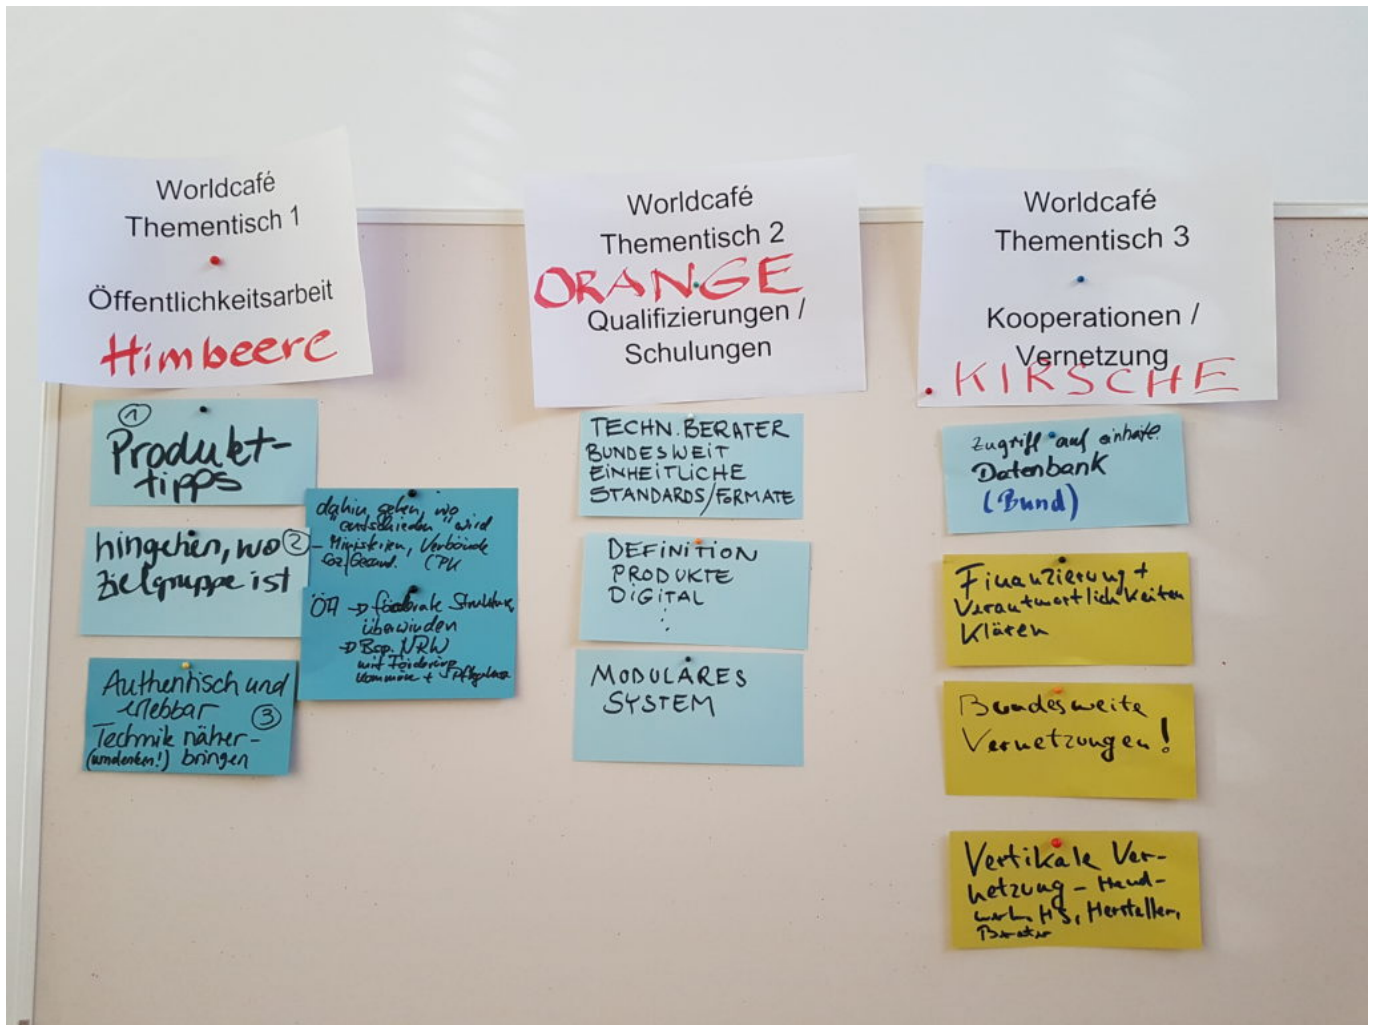 Worldcafé
Thementisch 1
Öffentlichkeitsarbeit
Himbeere
①
Produkt-
tipps
hingehen, wo ②
Zielgruppe ist
Authentisch und
erlebbar ③
Technik näher-
(umdenken!) bringen
dahin gehen, wo
"entschieden" wird
- Ministerien, Verbände
ÖA → föderale Struktur
überwinden
→ Bsp. NRW
mit Förderung
Kommune +
Worldcafé
Thementisch 2
ORANGE
Qualifizierungen /
Schulungen
TECHN. BERATER
BUNDESWEIT
EINHEITLICHE
STANDARDS/FORMATE
DEFINITION
PRODUKTE
DIGITAL
:
MODULARES
SYSTEM
Worldcafé
Thementisch 3
Kooperationen /
Vernetzung
KIRSCHE
Zugriff auf einheitl.
Datenbank
(Bund)
Finanzierung +
Verantwortlichkeiten
klären
Bundesweite
Vernetzungen!
Vertikale Ver-
netzung - Hand-
werk, HS, Hersteller,
Berater